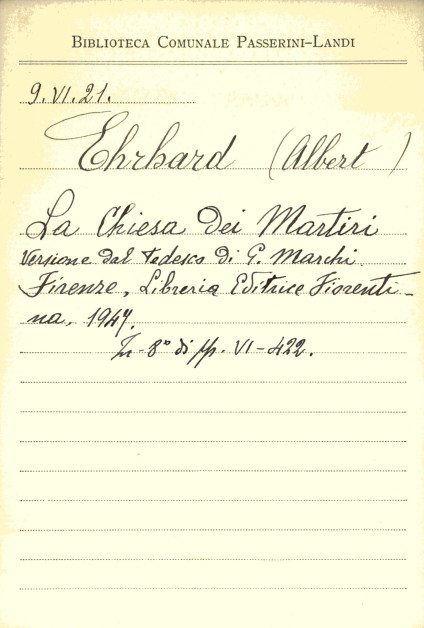 BIBLIOTECA COMUNALE PASSERINI-LANDI
9.VI.21.
Ehrhard (Albert)
La Chiesa dei Martiri
Versione dal tedesco di G. Marchi
Firenze, Libreria Editrice Fiorenti-
na, 1947.
In-8° di pp. VI-422.